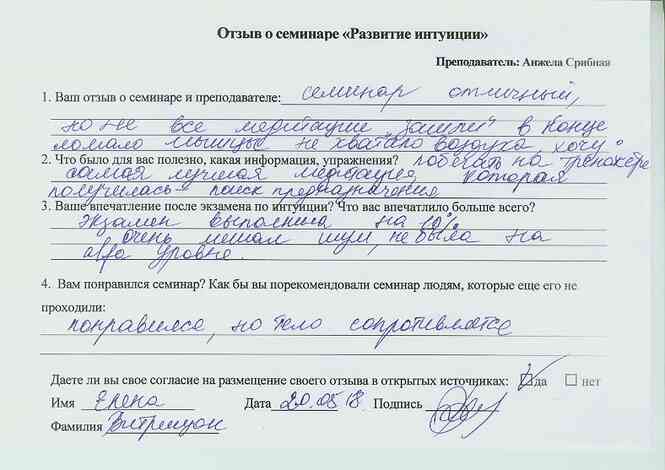 Отзыв о семинаре «Развитие интуиции»
Преподаватель: Анжела Срибная
1. Ваш отзыв о семинаре и преподавателе: семинар отличный,
но не все медитации "зашли" в конце
ломало мышцы не хватало воздуха, хочу
2. Что было для вас полезно, какая информация, упражнения? побегать на тренажёре
самая лучшая медитация которая
получилась - поиск предназначения
3. Ваше впечатление после экзамена по интуиции? Что вас впечатлило больше всего?
экзамен выполнила на 10%
очень мешал шум, не была на
alfa уровне.
4. Вам понравился семинар? Как бы вы порекомендовали семинар людям, которые еще его не
проходили:
понравился, но тело сопротивляется
Даете ли вы свое согласие на размещение своего отзыва в открытых источниках: да нет
Имя Елена Дата 20.05.18 Подпись
Фамилия